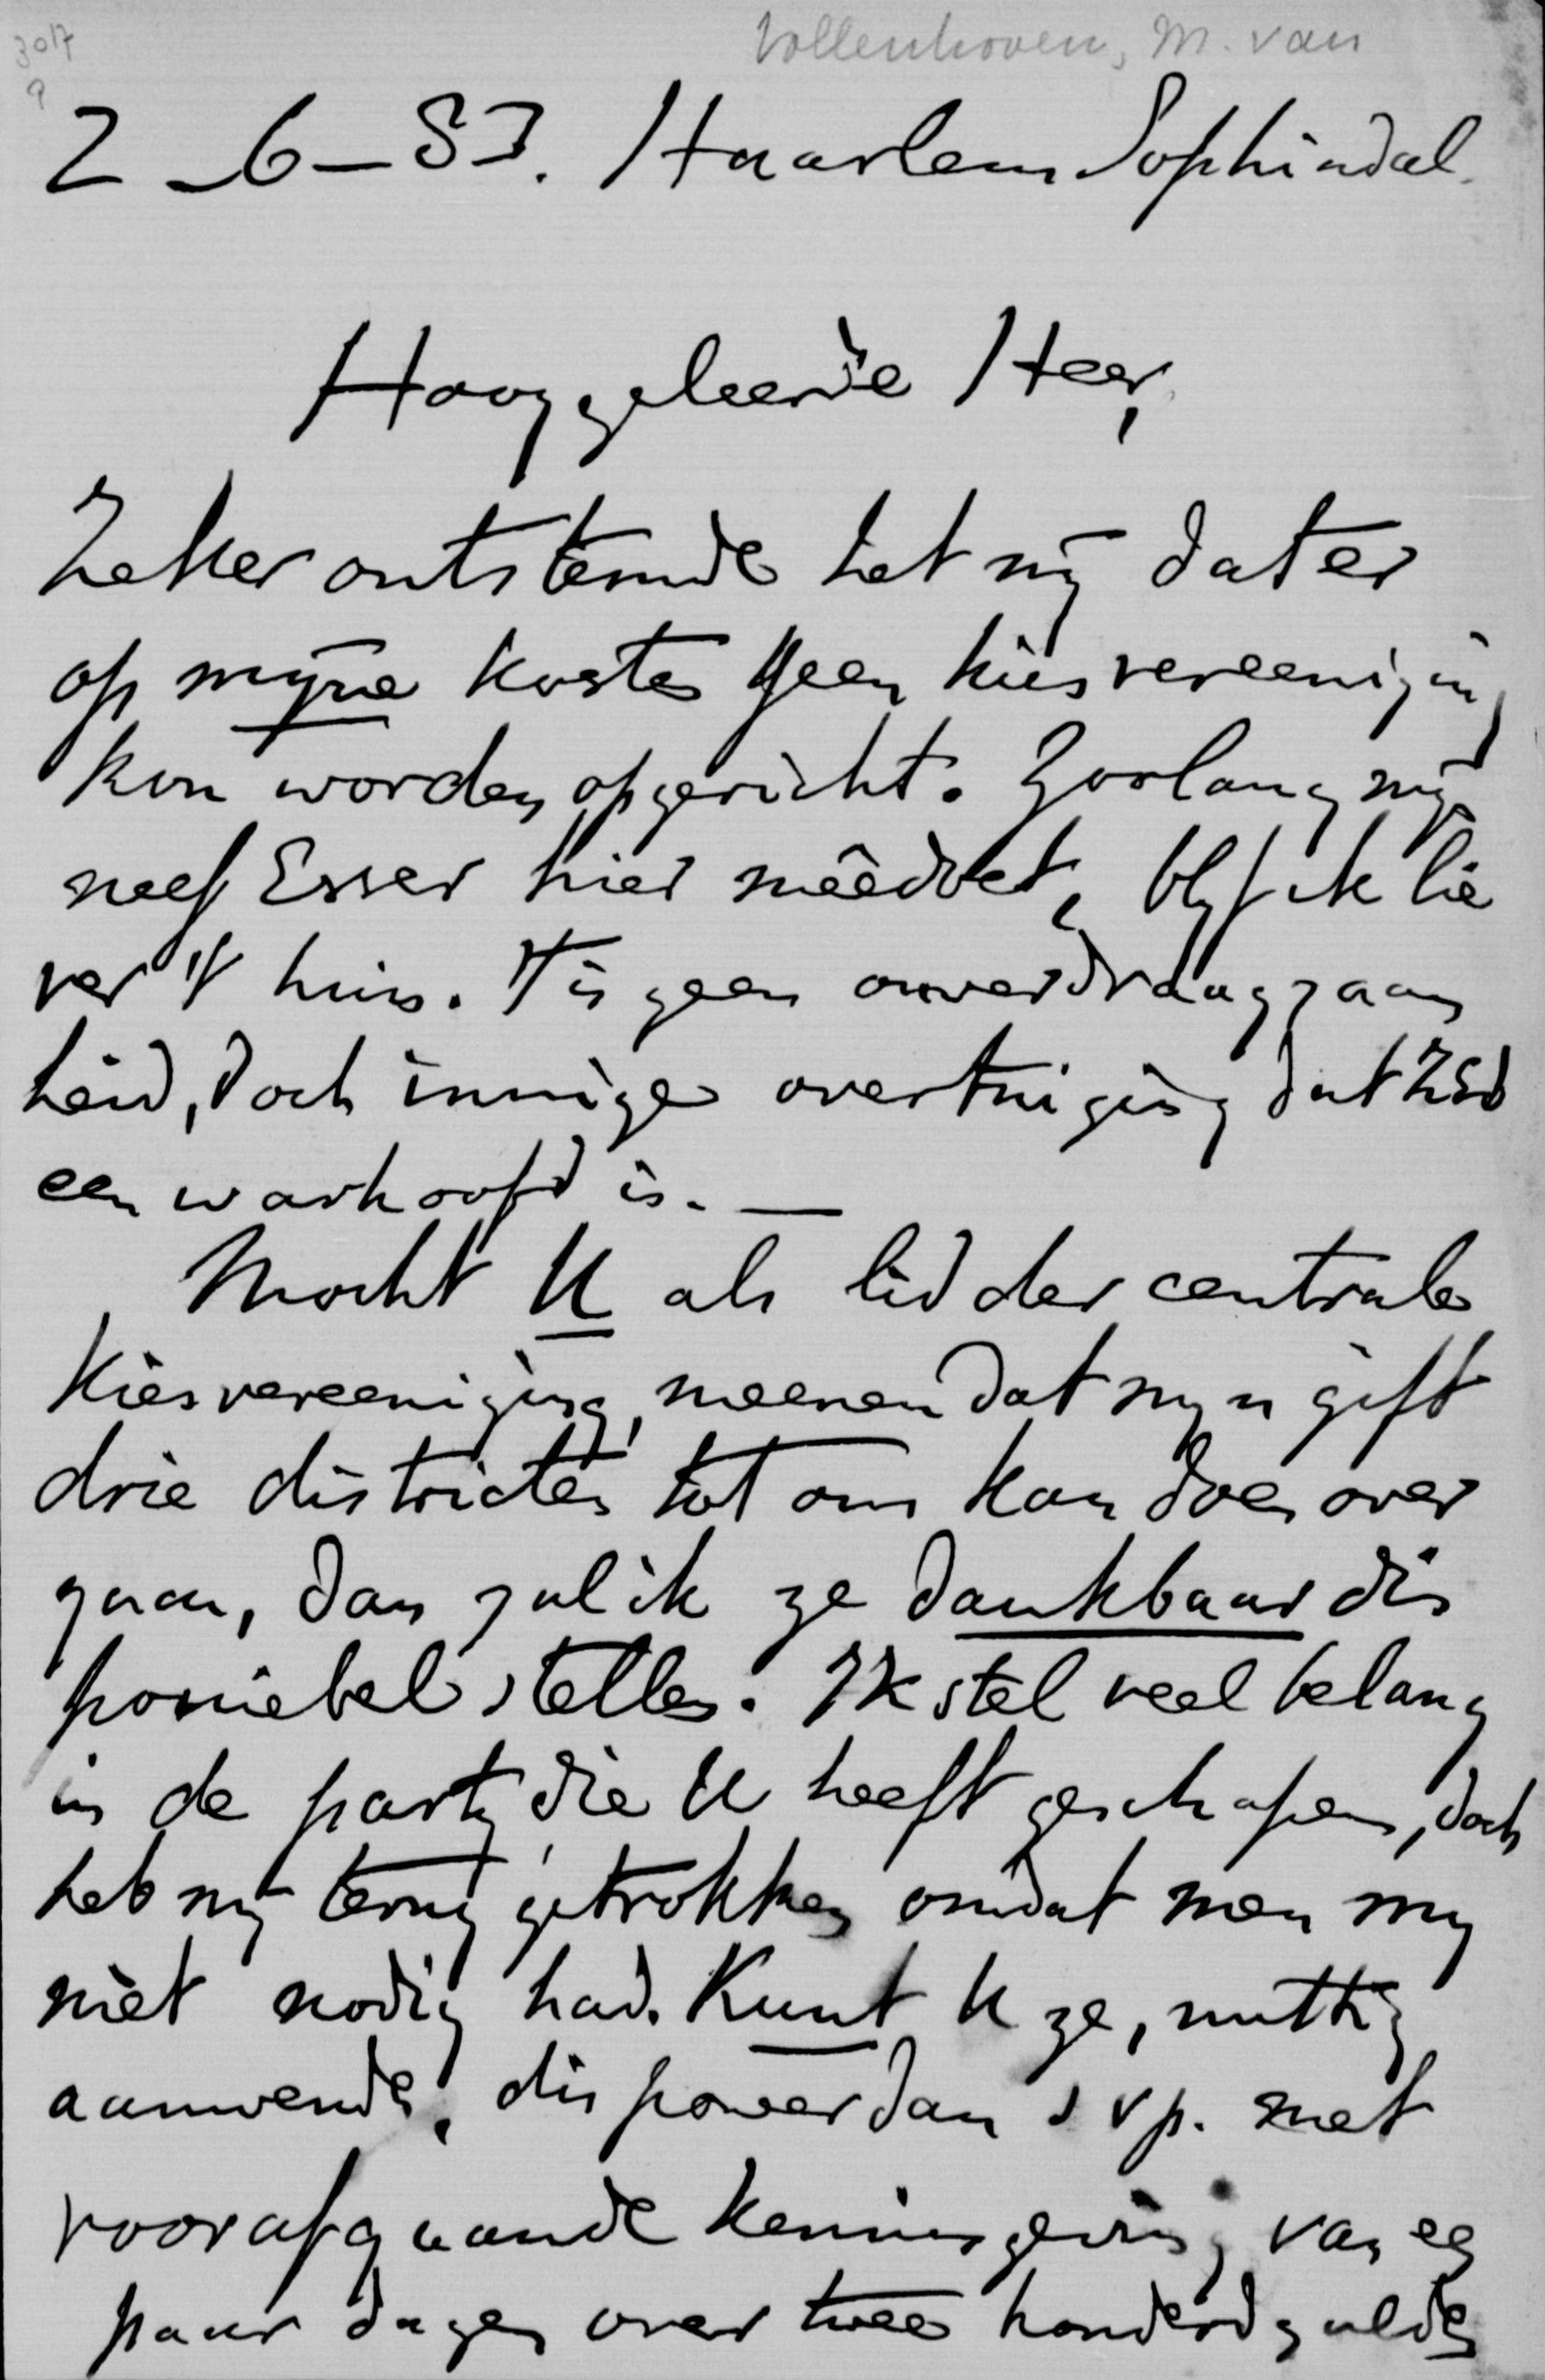 3017
Vollenhoven, M. van
2-6-83. Haarlem Sophiadal.
Hooggeleerde Heer,
Zeker ontstemde het mij dat er
op mijne kosten geen kiesvereeniging
kon worden opgericht. Zoolang mijn
neef Esser hier meêdoet, blyf ik lie
ver t' huis. 't Is geen onverdraagzaam
heid, doch innige overtuiging dat ZEd
een warhoofd is. —
Mocht U als lid der centrale
Kiesvereeniging, meenen dat myn gift
drie districten tot ons kan doen over
gaan, dan zal ik ze dankbaar dis
poniebel stellen. Ik stel veel belang
in de party die U heeft geschapen, doch
heb mij terug getrokken omdat men my
niet nodig had. Kunt U ze, nuttig
aanwenden, disponeer dan svp. met
voorafgaande kennisgeving van een
paar dagen over twee honderd gulden